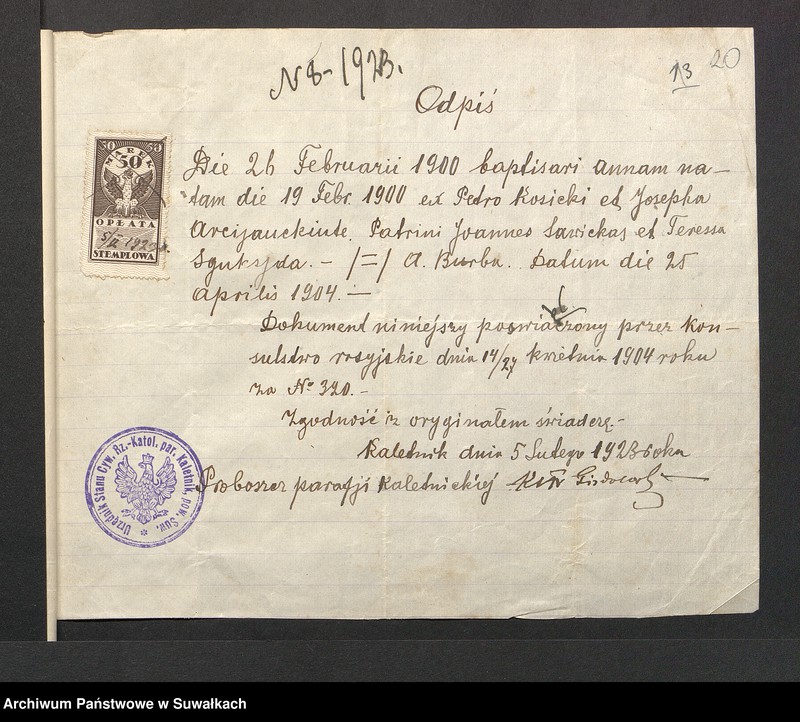 N 8-1923.
13 20
Odpiś
50 50
MAREK
50
OPŁATA
5/II 1923 r.
STEMPLOWA
Die 26 Februarii 1900 baptisari annam na-
tam die 19 Febr. 1900 ex Petro Kosicki et Josepha
Arcijauckiute. Patrini Joannes Sawickas et Teressa
. - /=/ A. Burba. Datum die 25
Aprilis 1904. -
Dokument niniejszy poswiadczony przez kon-
sulstwo rosyjskie dnia 14/27 kwietnia 1904 roku
za No 320. -
Zgodność z oryginałem świadczę. -
Kaletnik dnia 5 Lutego 1923 roku
Proboszcz parafji Kaletnickiej
Urzędnik Stanu Cyw. Rz.-Katol. par. Kaletnik, pow. Suw.
Archiwum Państwowe w Suwałkach